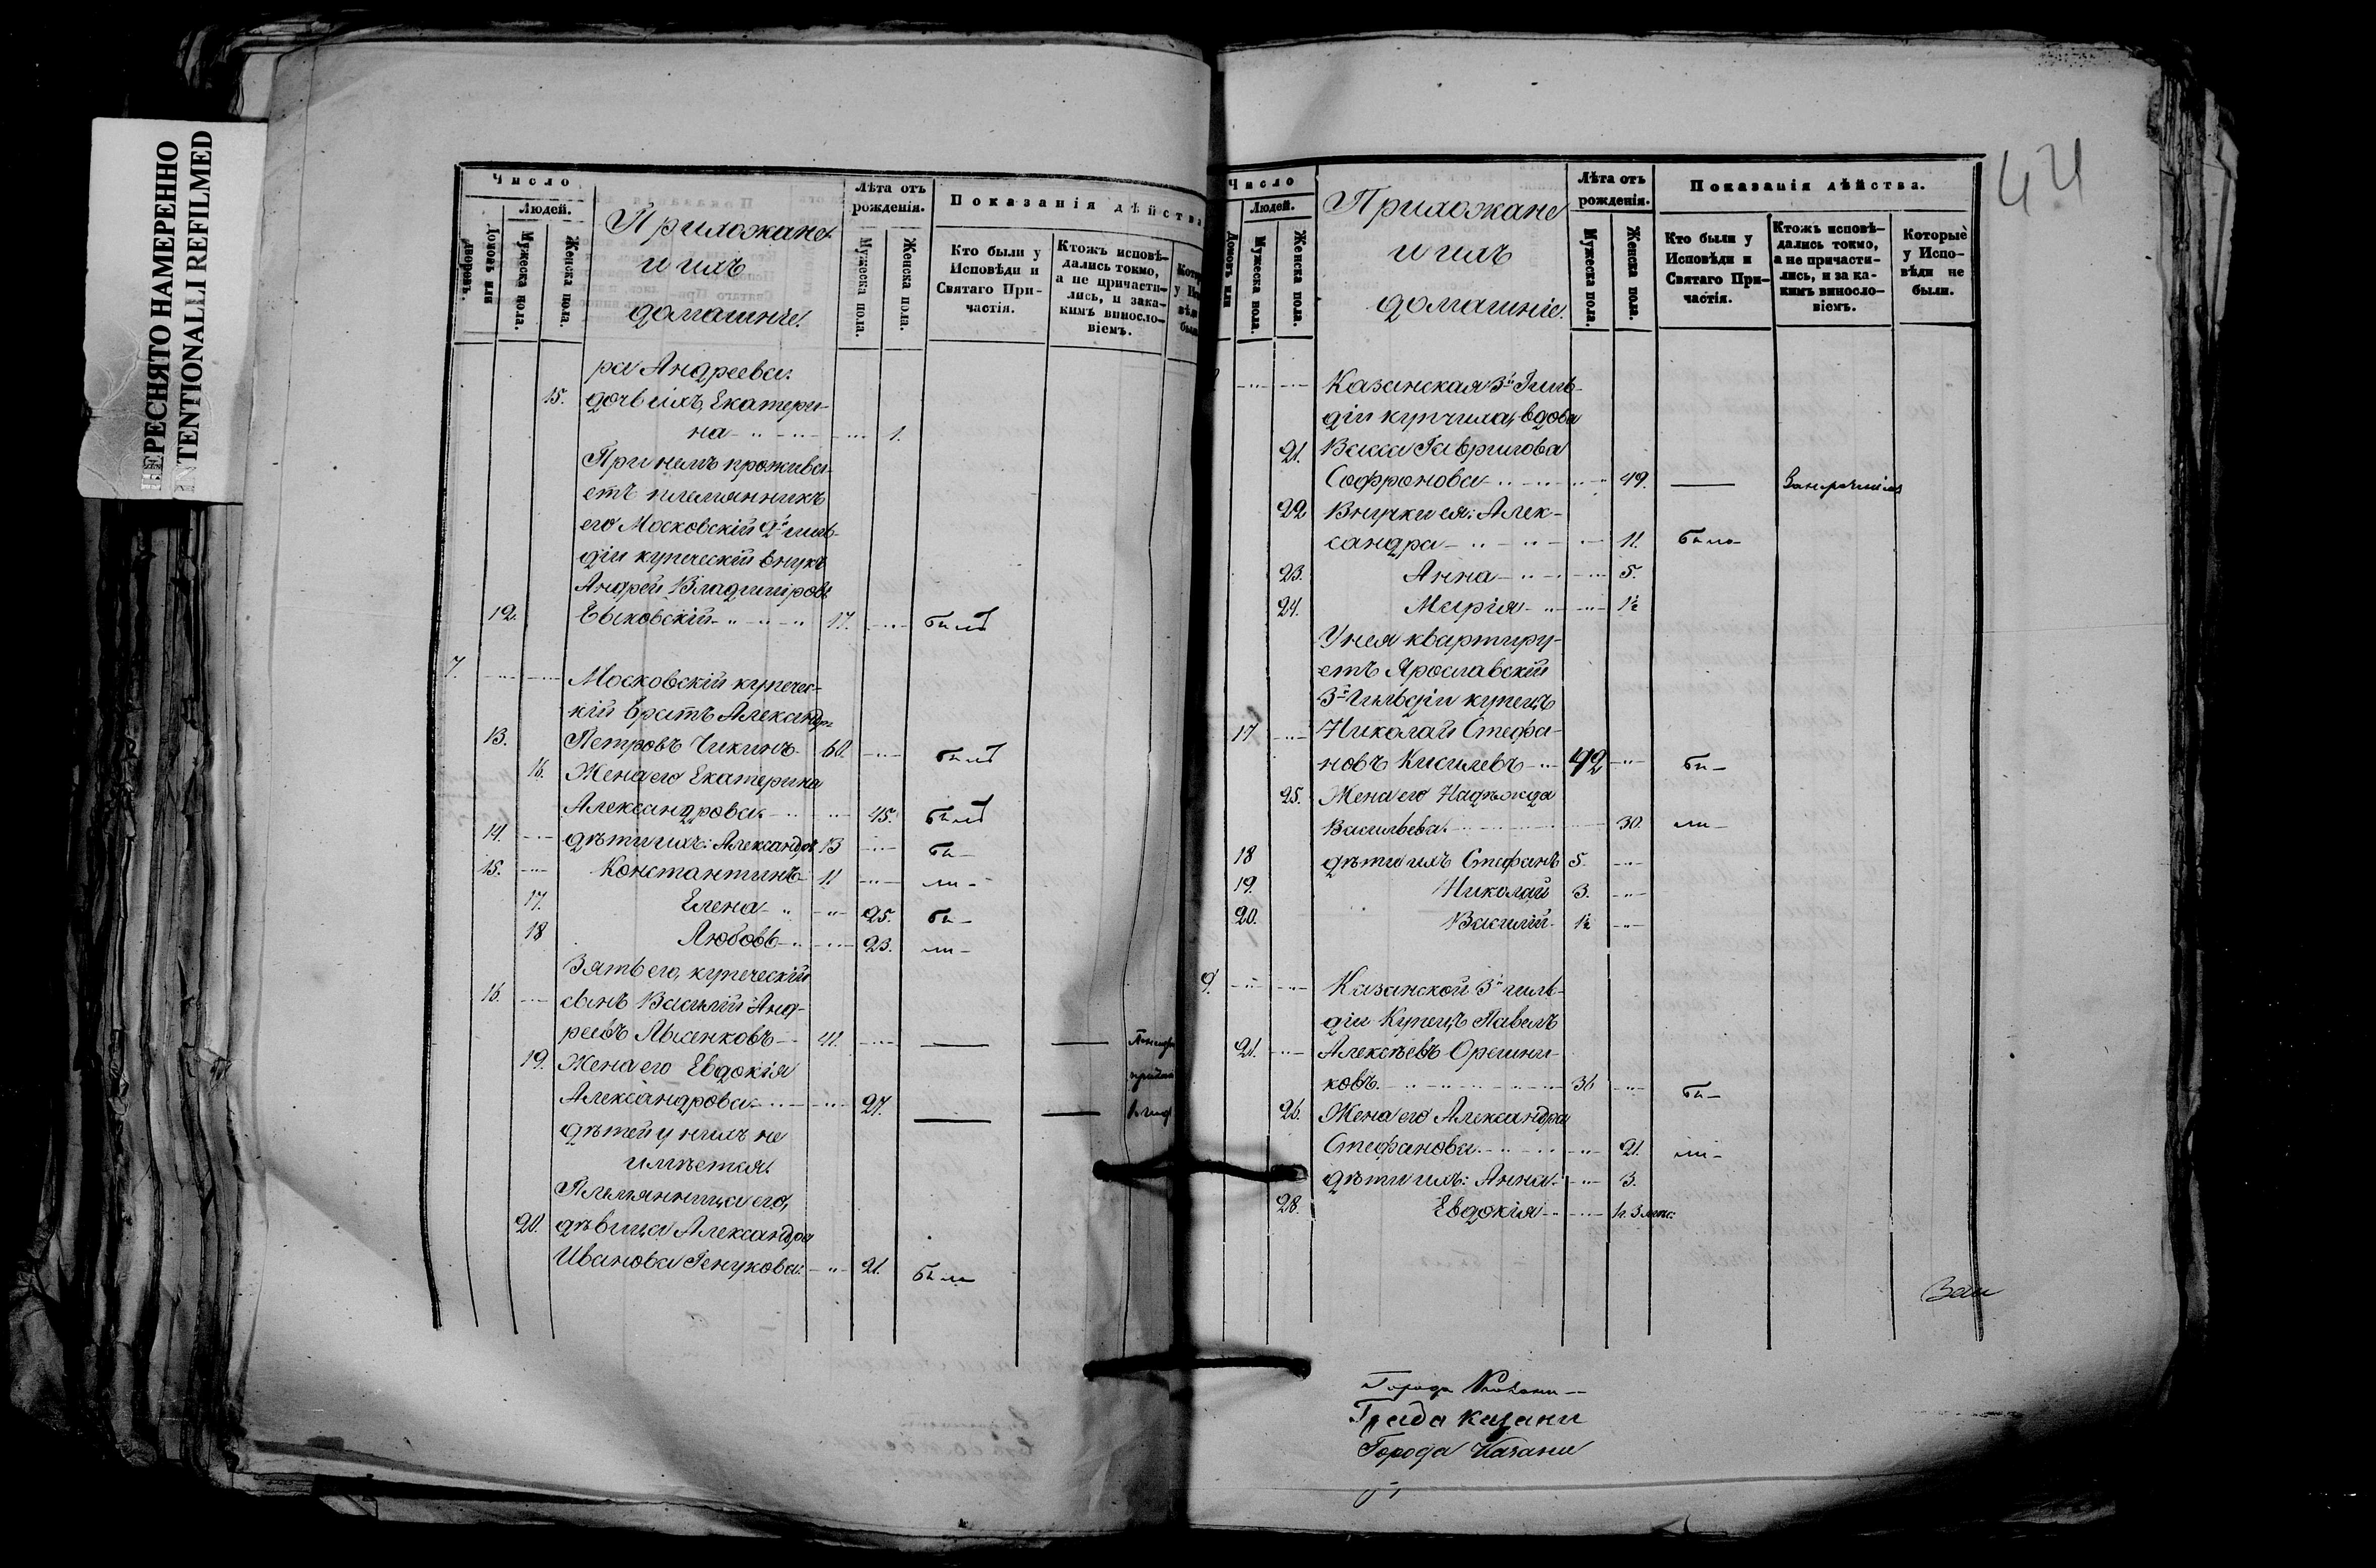 ПЕРЕСНЯТО НАМЕРЕННО
INTENTIONALLI REFILMED
Число
Людей.
Домовъ или дворовъ.
Мужеска пола.
Женска пола.
Прихожане
и ихъ
домашніе.
Лѣта отъ рожденія.
Мужеска пола.
Женска пола.
Показанія дѣйства
Кто были у Исповѣди и Святаго Причастія.
Ктожъ исповѣдались токмо, а не причастились, и закакимъ винословіемъ.
ра Андреева:
15. дочь ихъ, Екатери-
на 1.
При немъ прожива-
етъ племянникъ
его Московскій 2й гиль-
діи купеческій внукъ
Андрей Владиміровъ
12. Быковскій 17. былъ
7. Московскій купечес-
кій братъ Александръ
13. Петровъ Чикинъ 60. былъ
16. Жена его Екатерина
Александрова 45.
14. дѣти ихъ: Александръ 13 бы-
15. Константинъ 11 ли-
17. Елена 25. бы-
18 Любовь 23. ли-
Зять его, купеческій
16. сынъ Василій Анд-
реевъ Лысенковъ 41.
19. Жена его Евдокія
Александрова 27.
дѣтей у нихъ не
имѣется.
Племянница его,
20. дѣвица Александра
Иванова 21. была
44
Число
Людей.
Домовъ или
Мужеска пола.
Женска пола.
Прихожане
и ихъ
домашніе.
Лѣта отъ рожденія.
Мужеска пола.
Женска пола.
Показанія дѣйства.
Кто были у Исповѣди и Святаго Причастія.
Ктожъ исповѣдались токмо, а не причастились, и за какимъ винословіемъ.
Которые у Исповѣди не были.
Казанская 3й Гиль-
діи купчиха, вдова
21. Васса Гаврилова
Софронова 49.
22 Внучки ея: Алек-
сандра 11. была
23. Анна 5.
24. Марія 1½
У нея квартиру-
етъ Ярославскій
3й Гильдіи купецъ
17 Николай Стефа-
новъ Киселевъ 42 бы-
25. Жена его Надежда
Васильева 30. ли-
18 дѣти ихъ Стефанъ 5.
19. Николай 3.
20. Василій 1½
9. Казанской 3й гиль-
діи Купецъ Павелъ
21. Алексѣевъ Орешни-
ковъ 36 бы-
26. Жена его Александра
Стефанова 21. ли-
дѣти ихъ: Анна 3.
28. Евдокія 1г. 3 мес.
Града Казани
Города Казани